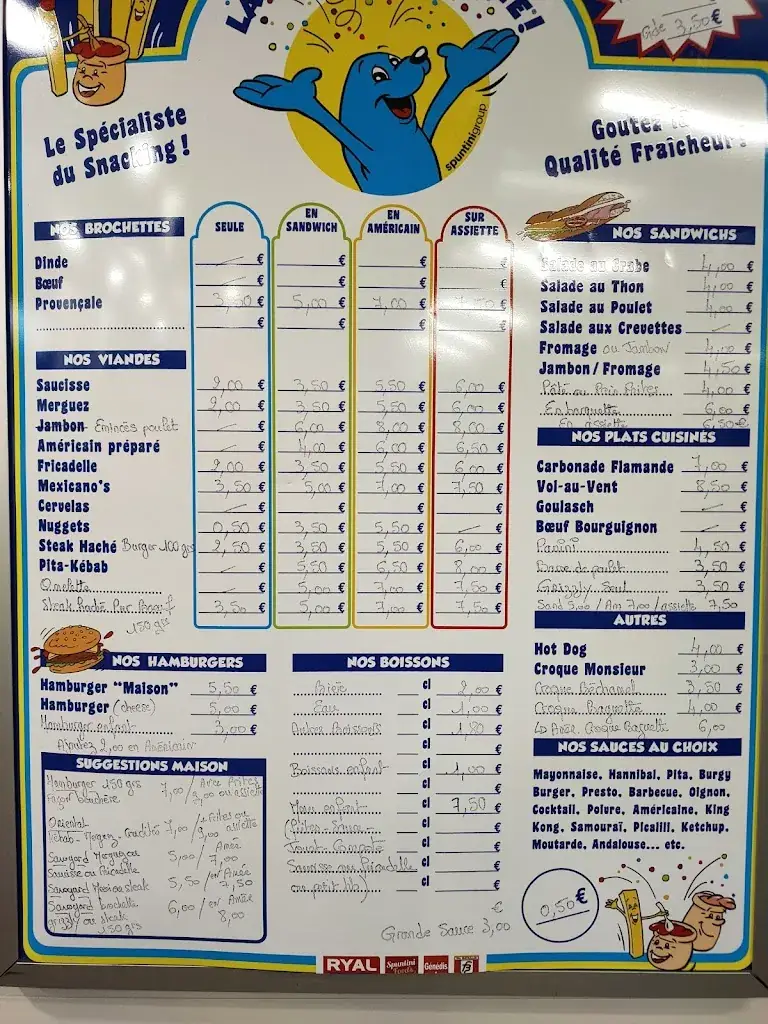 Gde 3,50€
Le Spécialiste
du Snacking !
spuntinigroup
Goutez la
Qualité Fraîcheur !
NOS BROCHETTES
SEULE
EN SANDWICH
EN AMÉRICAIN
SUR ASSIETTE
Dinde — € € € €
Bœuf — € € € €
Provençale 3,50 € 5,00 € 7,00 € 7,50 €
€ € € €
NOS VIANDES
Saucisse 2,00 € 3,50 € 5,50 € 6,00 €
Merguez 2,00 € 3,50 € 5,50 € 6,00 €
Jambon Emincés poulet — € 6,00 € 8,00 € 8,00 €
Américain préparé — € 4,00 € 6,00 € 6,50 €
Fricadelle 2,00 € 3,50 € 5,50 € 6,00 €
Mexicano's 3,50 € 5,00 € 7,00 € 7,50 €
Cervelas — € — € — € — €
Nuggets 0,50 € 3,50 € 5,50 € — €
Steak Haché Burger 100 grs 2,50 € 3,50 € 5,50 € 6,00 €
Pita-Kébab — € 5,50 € 6,50 € 8,00 €
Omelette — € 5,00 € 7,00 € 7,50 €
Steak Haché Pur Bœuf 3,50 € 5,00 € 7,00 € 7,50 €
150 grs
NOS HAMBURGERS
Hamburger "Maison" 5,50 €
Hamburger (cheese) 5,00 €
Hamburger enfant 3,00 €
Ajoutez 2,00 en Américain
SUGGESTIONS MAISON
Hamburger 150 grs 7,00 / Avec Frites
façon bouchère 9,00 ou assiette
Oriental
Kebab - Merguez - Crudités 7,00 / + Frites ou assiette 9,00
Savoyard Merguez ou 5,00 / Améri
Saucisse ou Fricadelle 7,00
Savoyard Mexi ou steak 5,50 / en Améri 7,50
Savoyard brochette 6,00 / en Améri
grizzly ou steak 8,00
150 grs
NOS BOISSONS
Bière cl 2,00 €
Eau cl 1,00 €
Autres Boissons cl 1,80 €
cl €
Boissons enfant cl 1,00 €
cl €
Menu enfant cl 7,50 €
(Frites - Sauce - cl €
Jouet - Compote cl €
Saucisse ou Fricadelle cl €
ou petit hb) cl
€
Grande Sauce 3,00
NOS SANDWICHS
Salade au Crabe 4,00 €
Salade au Thon 4,00 €
Salade au Poulet 4,00 €
Salade aux Crevettes — €
Fromage ou Jambon 4,00 €
Jambon / Fromage 4,50 €
Pâté ou Pain Frites 4,00 €
En barquette 6,00 €
En assiette 6,50 €
NOS PLATS CUISINÉS
Carbonade Flamande 7,00 €
Vol-au-Vent 8,50 €
Goulasch — €
Bœuf Bourguignon — €
Panini 4,50 €
3,50 €
Grizzly Seul 3,50 €
Sand 5,00 / Am 7,00 / assiette 7,50
AUTRES
Hot Dog 4,00 €
Croque Monsieur 3,00 €
Croque Béchamel 3,50 €
Croque Baguette 4,00 €
↳ Avec Croque Baguette 6,00
NOS SAUCES AU CHOIX
Mayonnaise, Hannibal, Pita, Burgy
Burger, Presto, Barbecue, Oignon,
Cocktail, Poivre, Américaine, King
Kong, Samouraï, Picalili, Ketchup,
Moutarde, Andalouse... etc.
0,50 €
RYAL
Spuntini Foods
Génédis